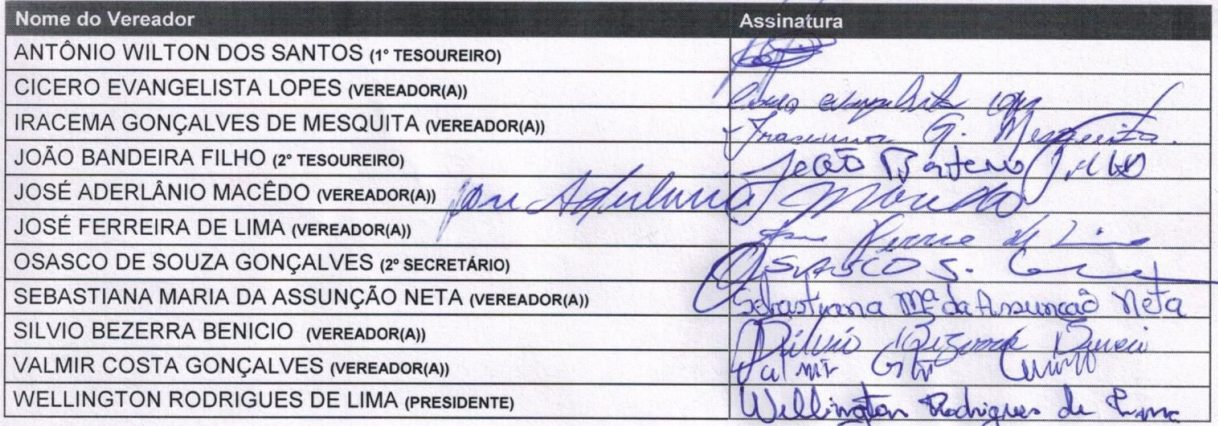 Nome do Vereador Assinatura
ANTÔNIO WILTON DOS SANTOS (1° TESOUREIRO)
CICERO EVANGELISTA LOPES (VEREADOR(A))
IRACEMA GONÇALVES DE MESQUITA (VEREADOR(A)) Iracema G. Mesquita.
JOÃO BANDEIRA FILHO (2° TESOUREIRO) João
JOSÉ ADERLÂNIO MACÊDO (VEREADOR(A))
JOSÉ FERREIRA DE LIMA (VEREADOR(A)) de Lima
OSASCO DE SOUZA GONÇALVES (2º SECRETÁRIO) OSASCO S.
SEBASTIANA MARIA DA ASSUNÇÃO NETA (VEREADOR(A)) Sebastiana Mª da Assunção Neta
SILVIO BEZERRA BENICIO (VEREADOR(A)) Silvio
VALMIR COSTA GONÇALVES (VEREADOR(A)) Valmir
WELLINGTON RODRIGUES DE LIMA (PRESIDENTE) Wellington Rodrigues de Lima